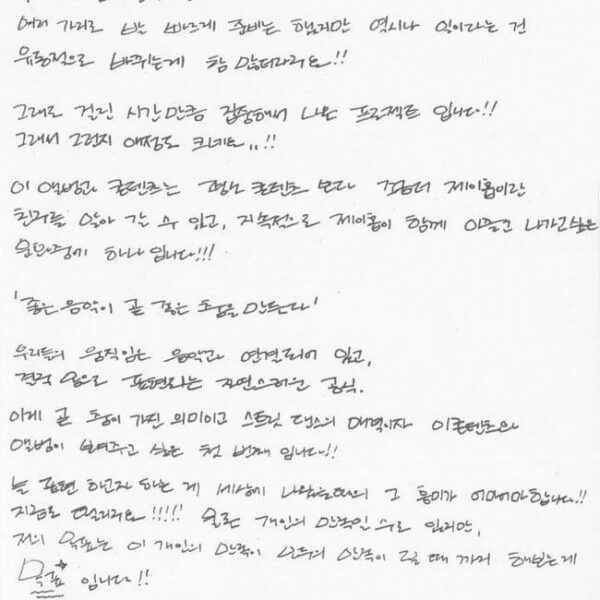 여러 가지로 발 빠르게 준비는 했지만 역시나 일이라는 건
유동적으로 바뀌는게 참 많더라구요!!
그래도 걸린 시간만큼 집중해서 나온 프로젝트 입니다!!
그래서 그런지 애정도 크네요..!!
이 앨범과 콘텐츠는 콘텐츠 보다 좀더 제이홉이란
친구를 알아 갈 수 있고, 지속적으로 제이홉이 함께 이끌고 나가고싶은
문화중에 하나 입니다!!!
'좋은 음악이 곧 좋은 춤을 만든다'
우리들의 움직임은 음악과 연결되어 있고,
결국 몸으로 표현하는 자연스러운 공식.
이게 곧 춤이 가진 의미이고 스트릿 댄스의 매력이자 이콘텐츠와
앨범이 보여주고 싶은 첫 번째 입니다!!
늘 표현 하고자 하는 게 세상에 나왔을때의 그 흥미가 어마어마합니다!!
지금도 떨리구요!!!!! 물론 개인의 만족일 수도 있지만,
저의 목표는 이 개인의 만족이 모두의 만족이 될 때 까지 해보는게
목표 입니다!!